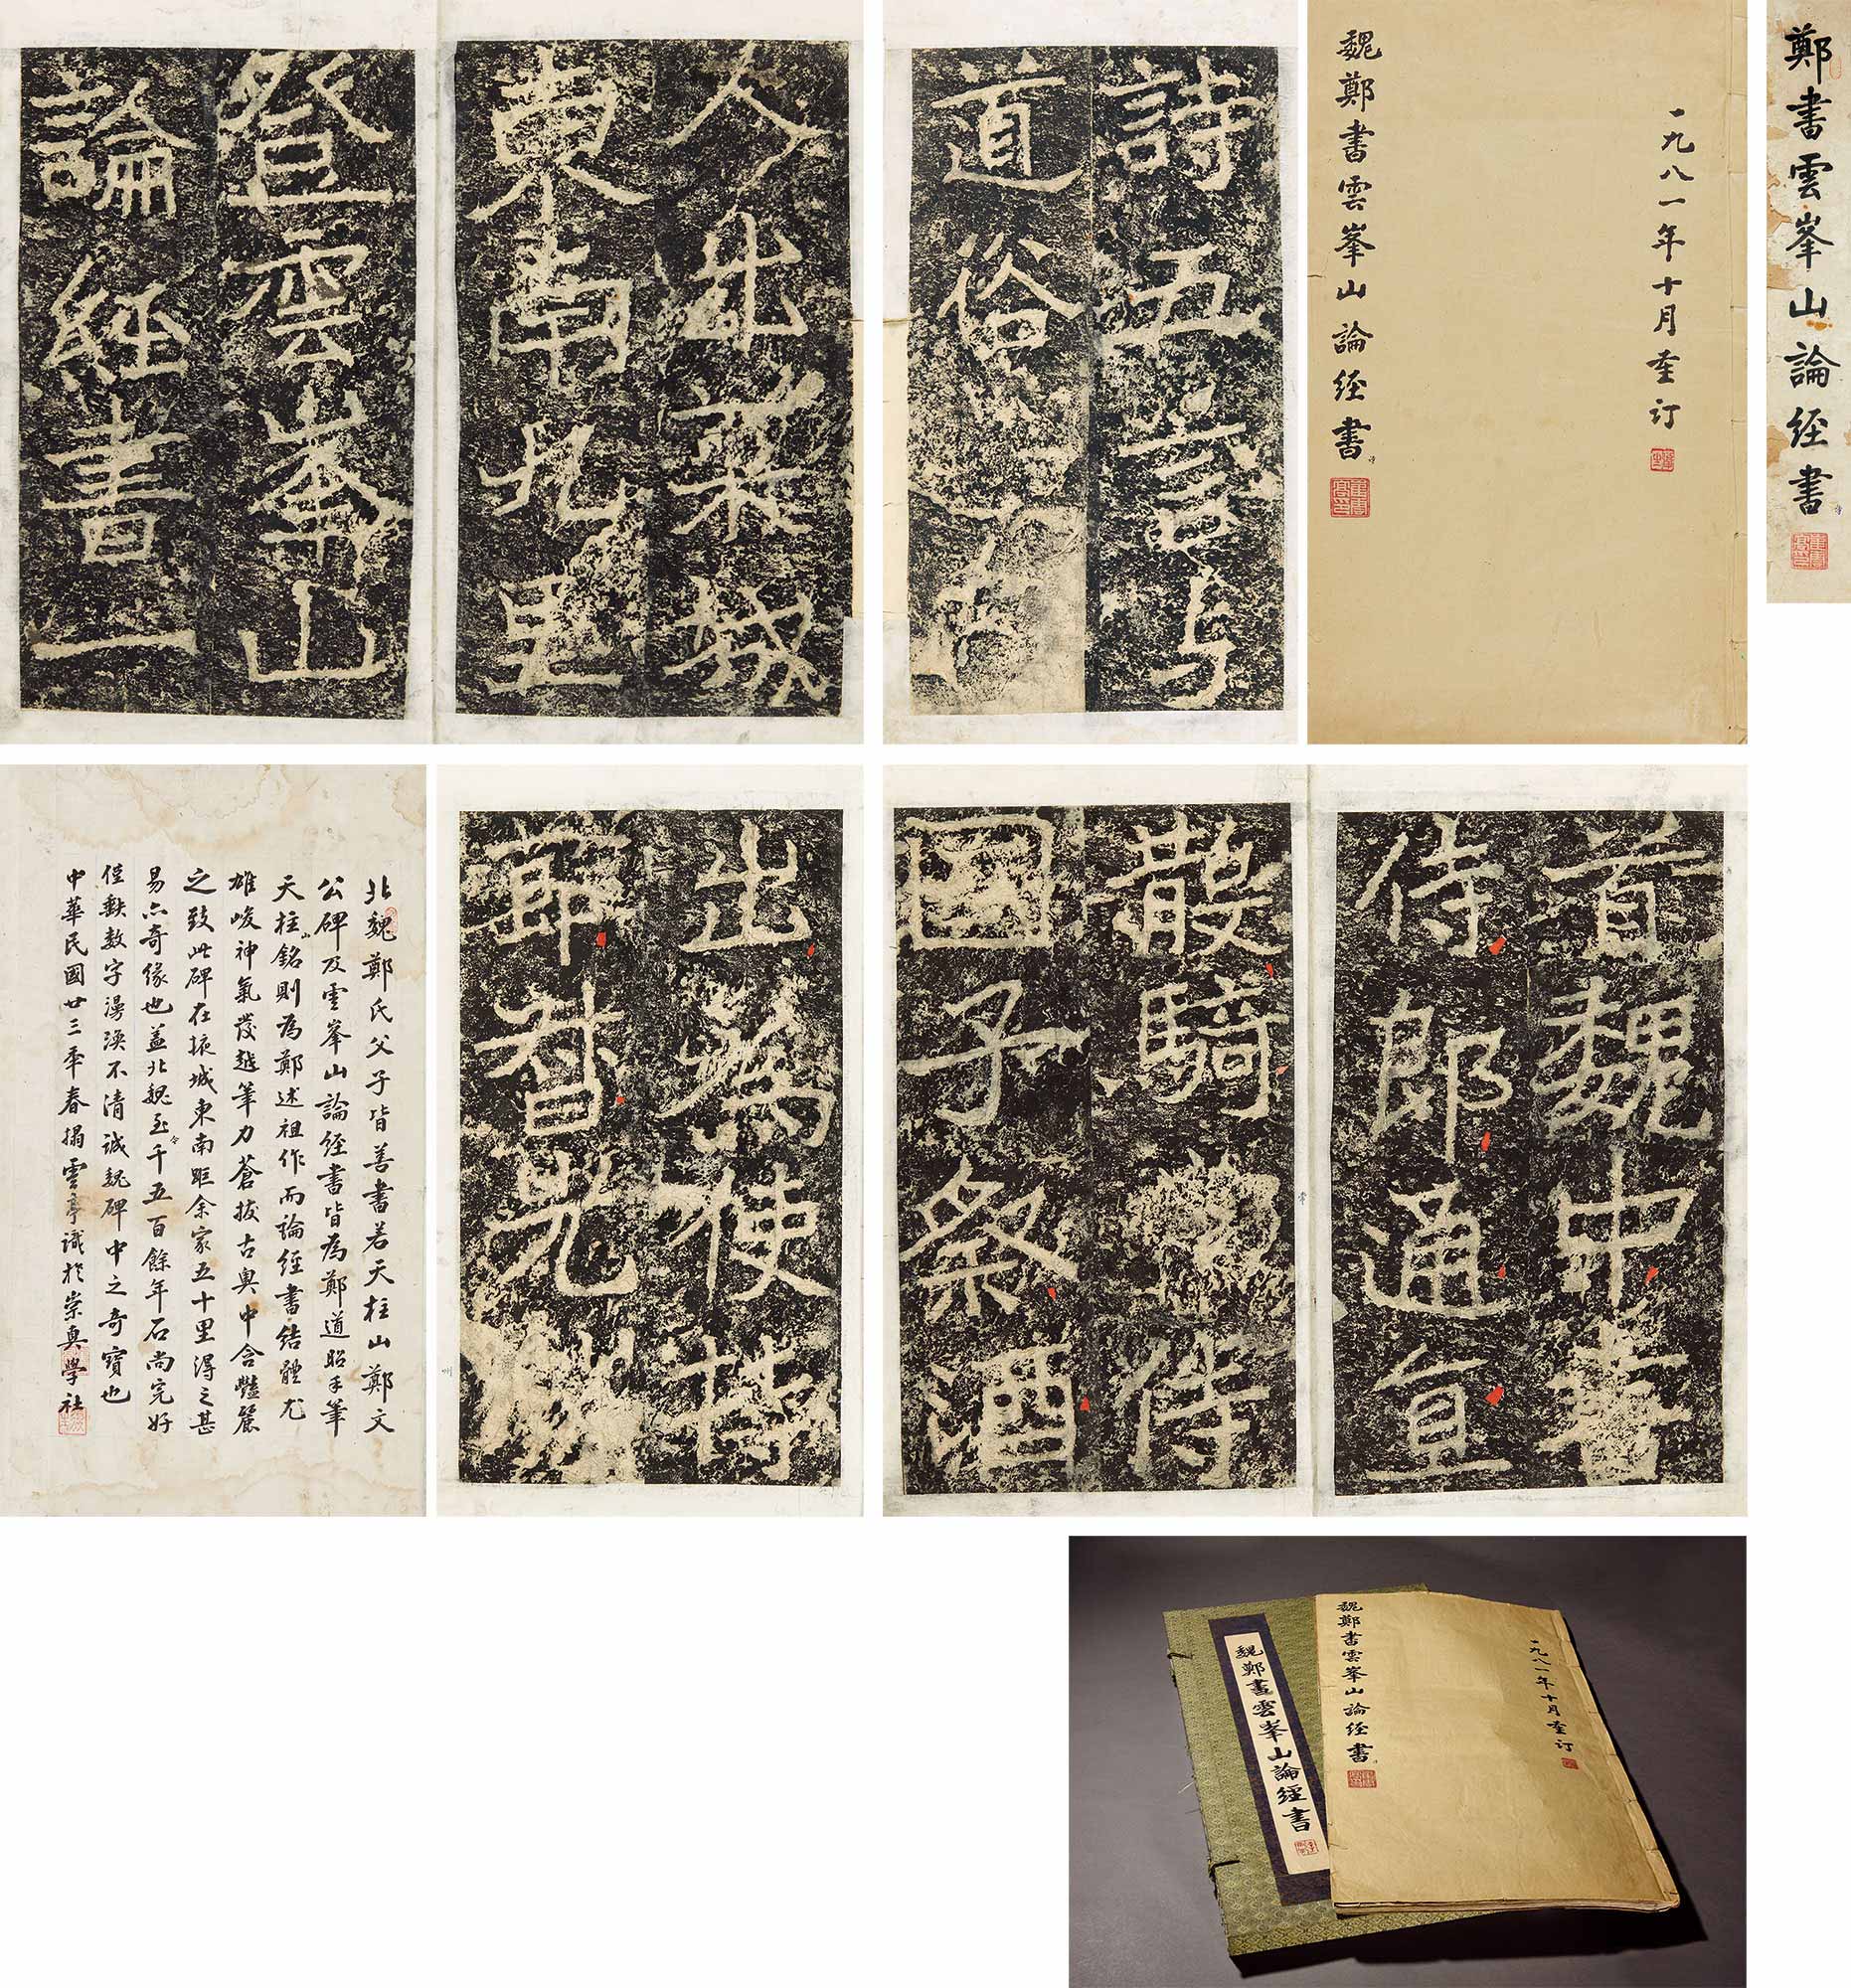 鄭書雲峯山論経書
一九八一年十月重订
魏鄭書雲峯山論経書
詩五言与
道俗
人出萊城
東南九里
登雲峯山
論經書一
首魏中書
侍郎通直
散騎常侍
國子祭酒
出為使持
節督光州
北魏鄭氏父子皆善書若天柱山鄭文
公碑及雲峯山論経書皆為鄭道昭手筆
天柱山銘則為鄭述祖作而論経書結體尤
雄峻神氣發越筆力蒼拔古奥中含豔麗
之致此碑在掖城東南距余家五十里得之甚
易亦奇緣也盖北魏至今千五百餘年石尚完好
僅數字漫漶不清誠魏碑中之奇寶也
中華民國廿三年春搨雲亭識於崇真學社
魏鄭書雲峯山論經書
魏鄭書雲峯山論経書
一九八一年十月重订